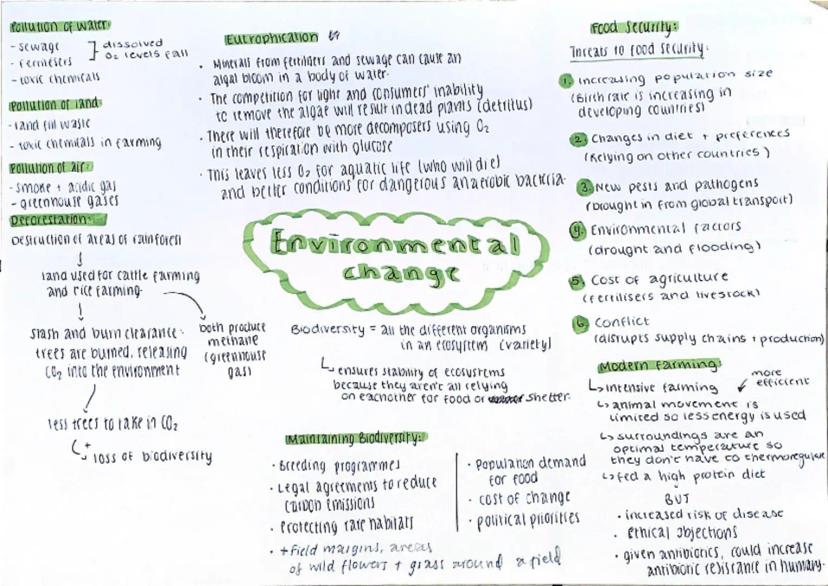 Pollution of water:
- sewage
- fertilisers
- toxic chemicals
dissolved
O₂ levels fall
Pollution of land
- land fill waste
- toxic chemicals in farming
Pollution of air:
- smoke + acidic gas
- greenhouse gases
Deforestation:
Destruction of areas of rainforest
land used for cattle farming
and rice farming
both produce
methane
(greenhouse
gas)
slash and burn clearance:
trees are burned, releasing
CO₂ into the environment
less trees to take in CO₂
+
loss of biodiversity
Eutrophication
• Minerals from fertilisers and sewage can cause an
algal bloom in a body of water.
• The competition for light and consumers' inability
to remove the algae will result in dead plants (detritus)
• There will therefore be more decomposers using O₂
in their respiration with glucose
• This leaves less O₂ for aquatic life (who will die)
and better conditions for dangerous anaerobic bacteria.
Environmental
change
Biodiversity = all the different organisms
in an ecosystem (variety)
ensures stability of ecosystems
because they aren't all relying
on eachother for food or shelter.
Maintaining Biodiversity:
• Breeding programmes
• Legal agreements to reduce
carbon emissions
• Protecting rare habitats
• + field margins, areas
of wild flowers + grass around a field
• Population demand
for food
• cost of change
• political priorities
Food Security:
Threats to food security:
1. Increasing population size
(Birth rate is increasing in
developing countries)
2. Changes in diet + preferences
(Relying on other countries)
3. New pests and pathogens
(brought in from global transport)
4. Environmental factors
(drought and flooding)
5. Cost of agriculture
(fertilisers and livestock)
6. Conflict
(disrupts supply chains + production)
Modern farming:
Intensive farming
more
efficient
animal movement is
limited so less energy is used
surroundings are an
optimal temperature so
they don't have to thermoregulate
fed a high protein diet
BUT
• increased risk of disease
• ethical objections
• given antibiotics, could increase
antibiotic resistance in humans.